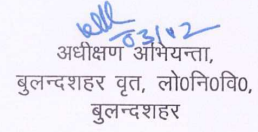 03/02
अधीक्षण अभियन्ता,
बुलन्दशहर वृत, लो०नि०वि०,
बुलन्दशहर